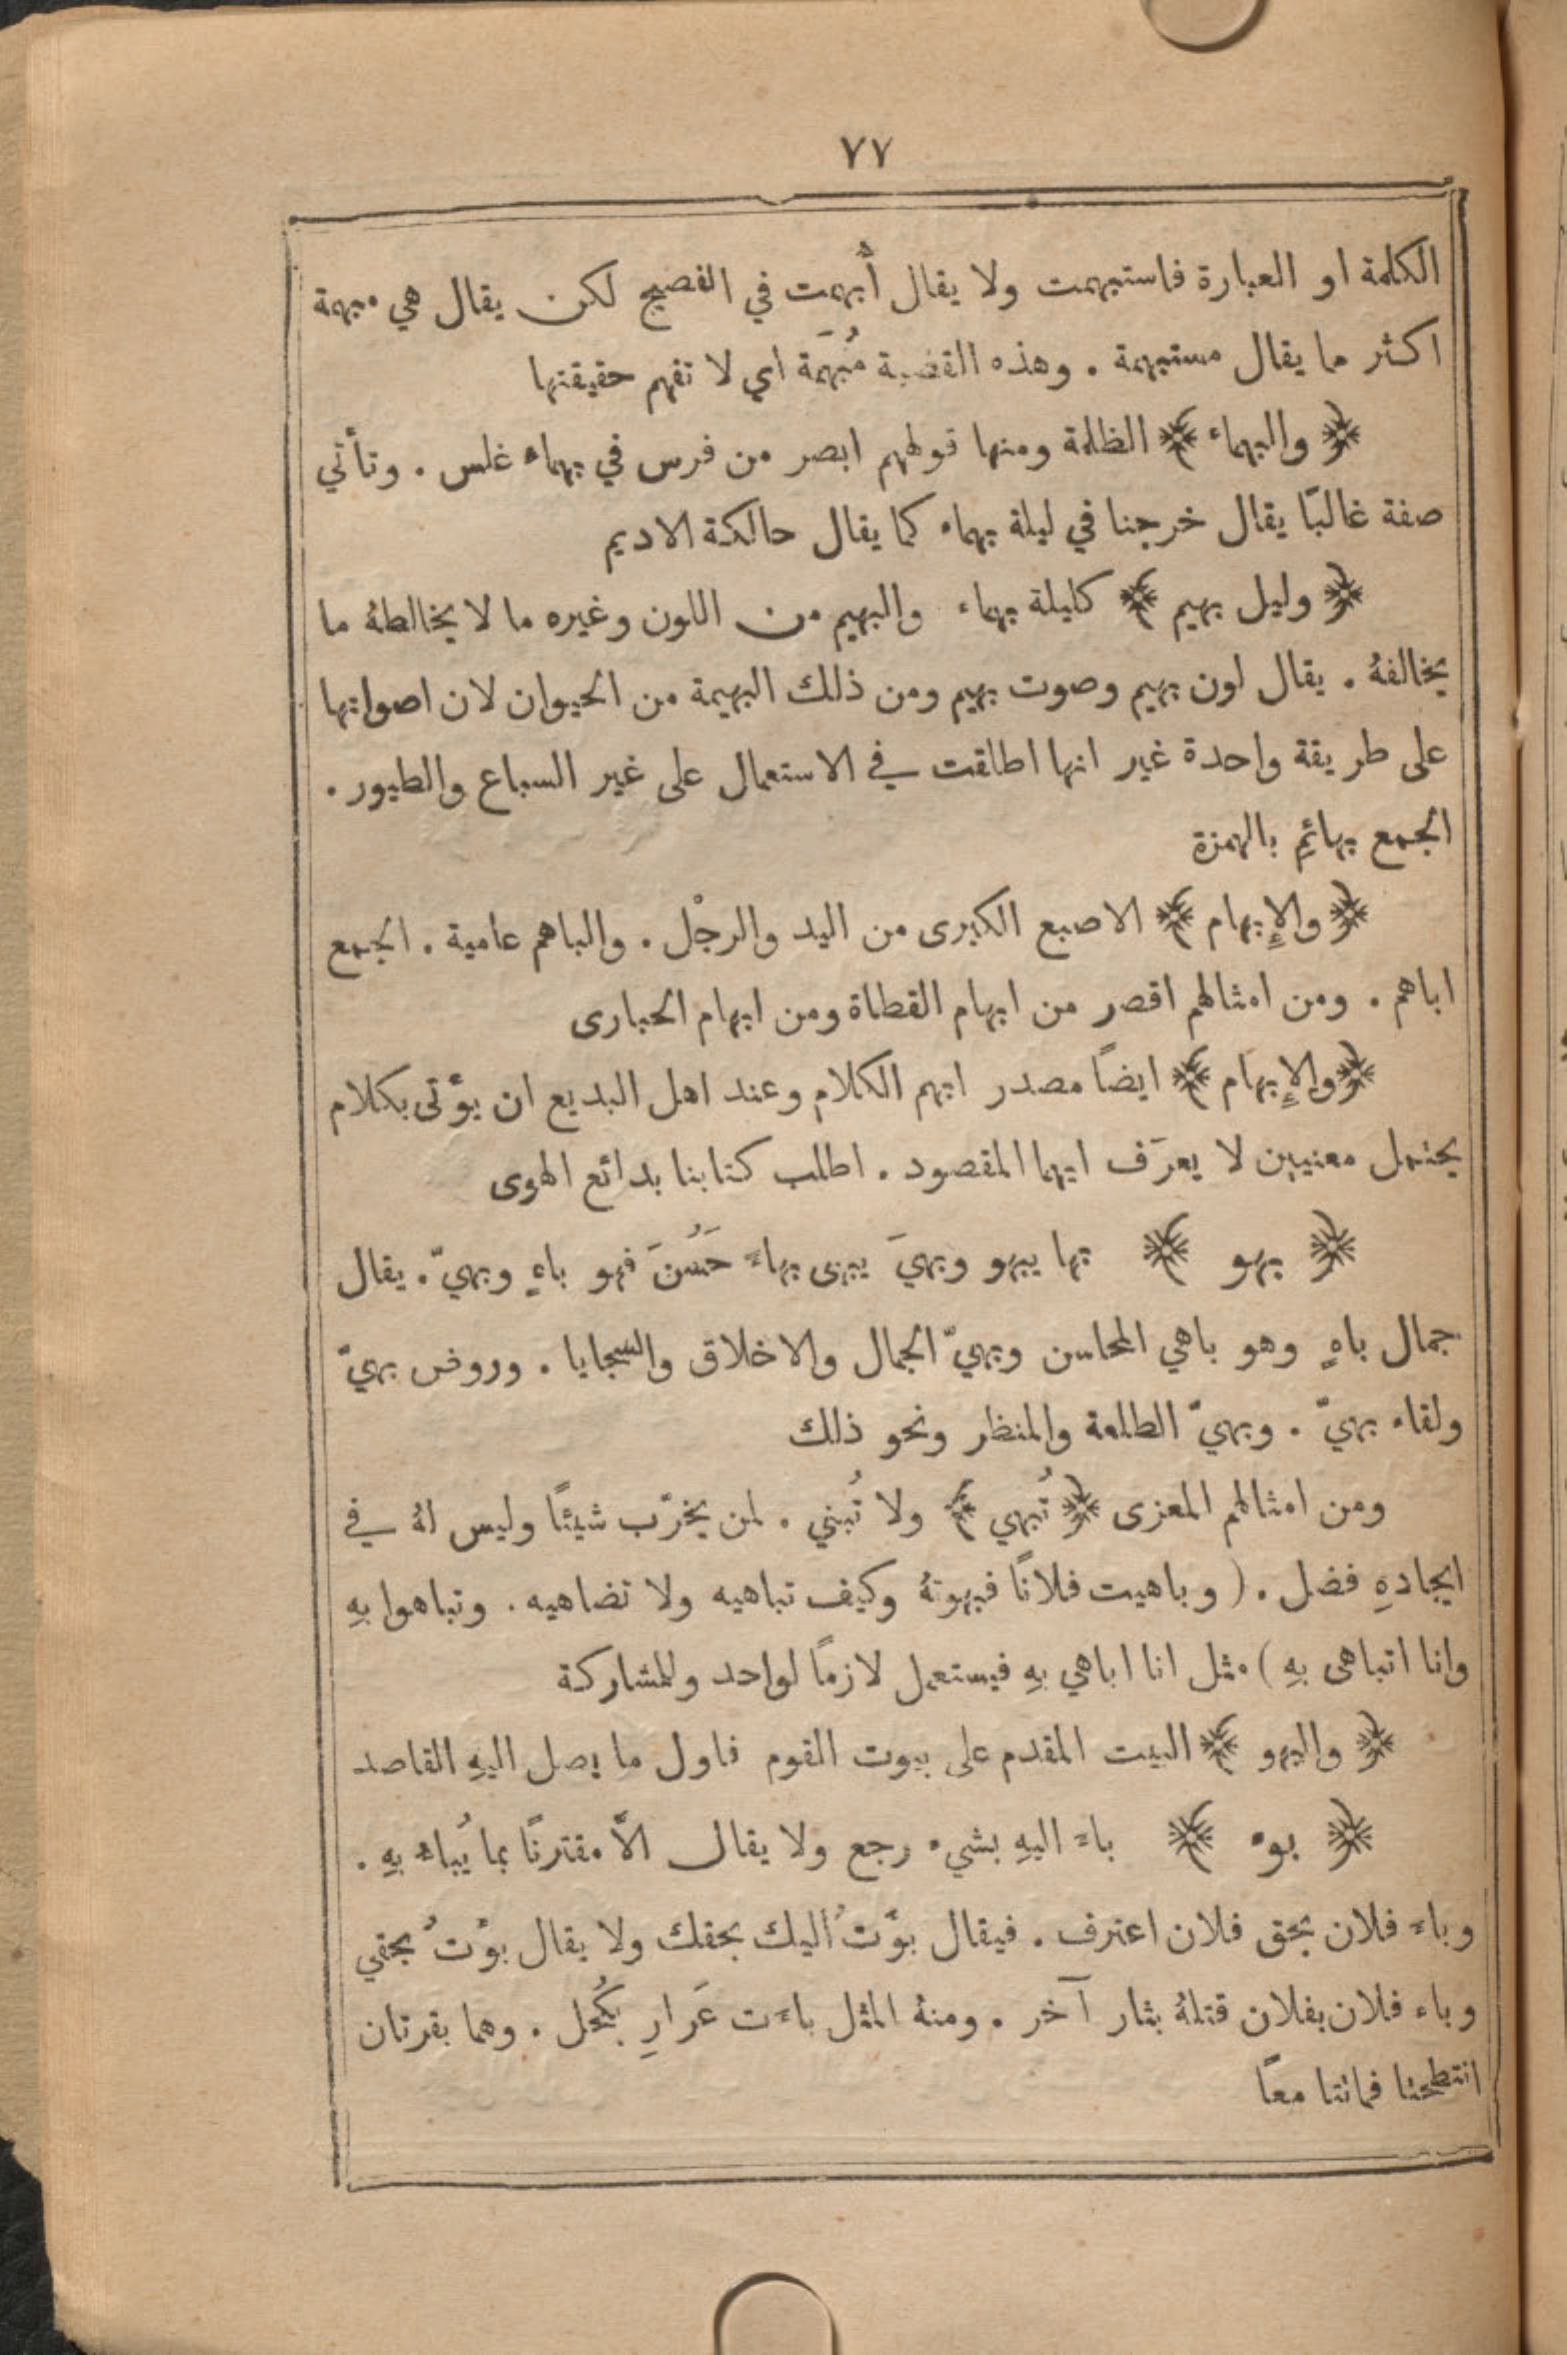 ٧٧
الكلمة او العبارة فاستبهمت ولا يقال أُبهمت في الفصيح لكن يقال هي مبهمة
اكثر ما يقال مستبهمة . وهذه القضية مُبهَمة اي لا تفهم حقيقتها
﴿ والبهماء ﴾ الظلمة ومنها قولهم ابصر من فرس في بهماء غلس . وتأتي
صفة غالبًا يقال خرجنا في ليلة بهماء كما يقال حالكة الاديم
﴿ وليل بهيم ﴾ كليلة بهماء والبهيم من اللون وغيره ما لا يخالطهُ ما
يخالفهُ . يقال لون بهيم وصوت بهيم ومن ذلك البهيمة من الحيوان لان اصواتها
على طريقة واحدة غير انها اطلقت في الاستعمال على غير السباع والطيور .
الجمع بهائِم بالهمزة
﴿ والإِبهام ﴾ الاصبع الكبرى من اليد والرجْل . والباهم عامية . الجمع
اباهم . ومن امثالهم اقصر من ابهام القطاة ومن ابهام الحبارى
﴿ والإِبهام ﴾ ايضًا مصدر ابهم الكلام وعند اهل البديع ان يؤْتى بكلام
يحتمل معنيين لا يعرَف ايهما المقصود . اطلب كتابنا بدائع الهوى
﴿ بهو ﴾ بها يبهو وبهيَ يبهى بهاءً حَسُنَ فهو باهٍ وبهيّ . يقال
جمال باهٍ وهو باهي المحاسن وبهيّ الجمال والاخلاق والسجايا . وروض بهيّ
ولقاء بهيّ . وبهيّ الطلعة والمنظر ونحو ذلك
ومن امثالهم المعزى ﴿ تُبهي ﴾ ولا تُبني . لمن يخرّب شيئًا وليس لهُ في
ايجادهِ فضل . ( وباهيت فلانًا فبهوتهُ وكيف تباهيه ولا تضاهيه . وتباهوا بهِ
وانا اتباهى بهِ ) مثل انا اباهي بهِ فيستعمل لازمًا لواحد وللمشاركة
﴿ والبهو ﴾ البيت المقدم على بيوت القوم فاول ما يصل اليهِ القاصد
﴿ بوء ﴾ باءَ اليهِ بشيء رجع ولا يقال الاَّ مقترنًا بما يُباء بهِ .
وباءَ فلان بحق فلان اعترف . فيقال بؤْتُ اليك بحقك ولا يقال بؤْتُ بحقي
وباء فلان بفلان قتلهُ بثار آخر . ومنهُ المثل باءَت عَرارِ بكُحل . وهما بقرتان
انتطحتا فماتتا معًا